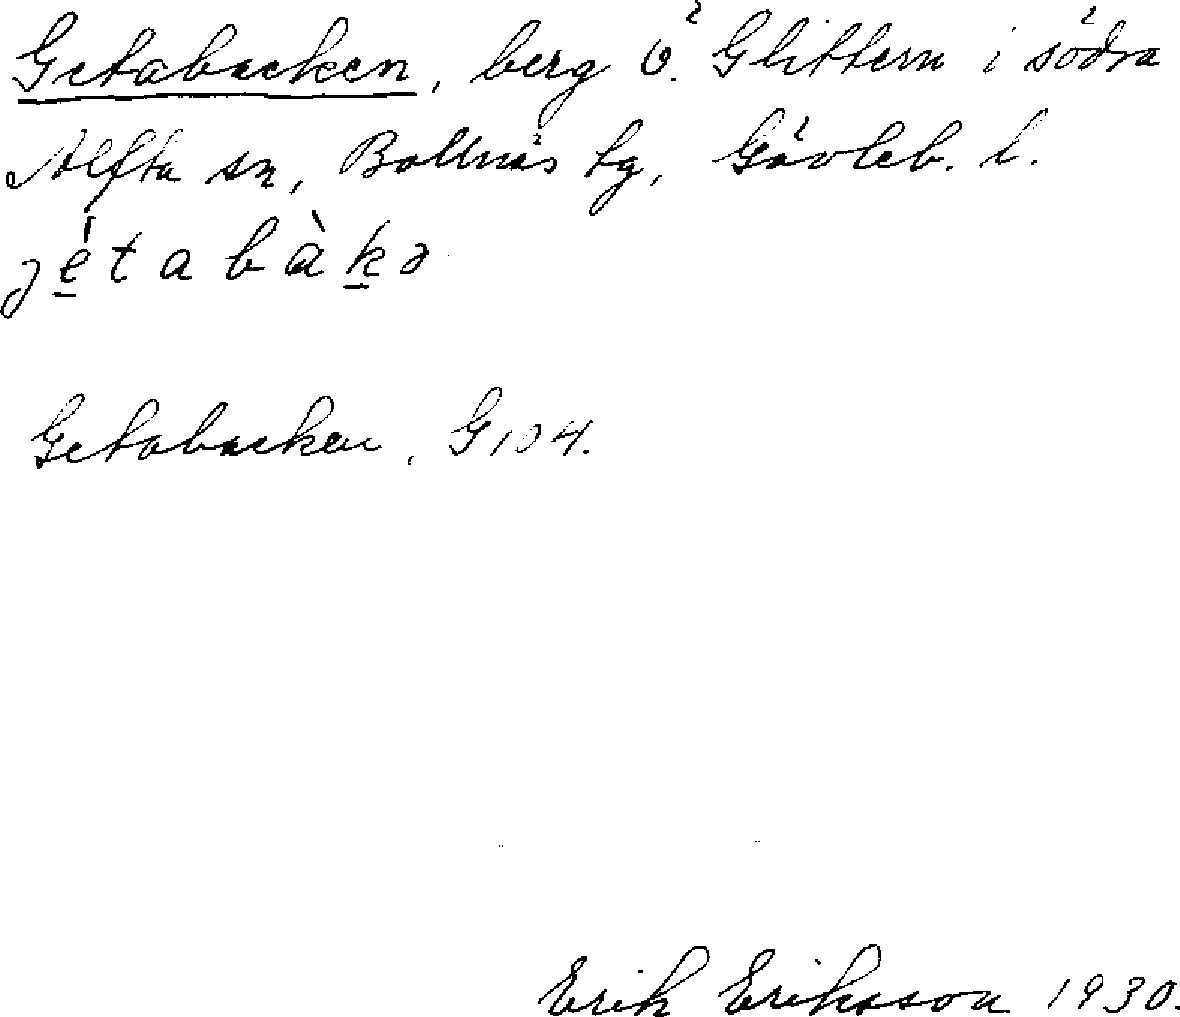 Getabacken, berg ö. Glittern i södra
Alfta sn, Bollnäs tg, Gävleb. l.
ȷè̱tabàḵə
Getabacken, G104.
Erik Eriksson 1930.